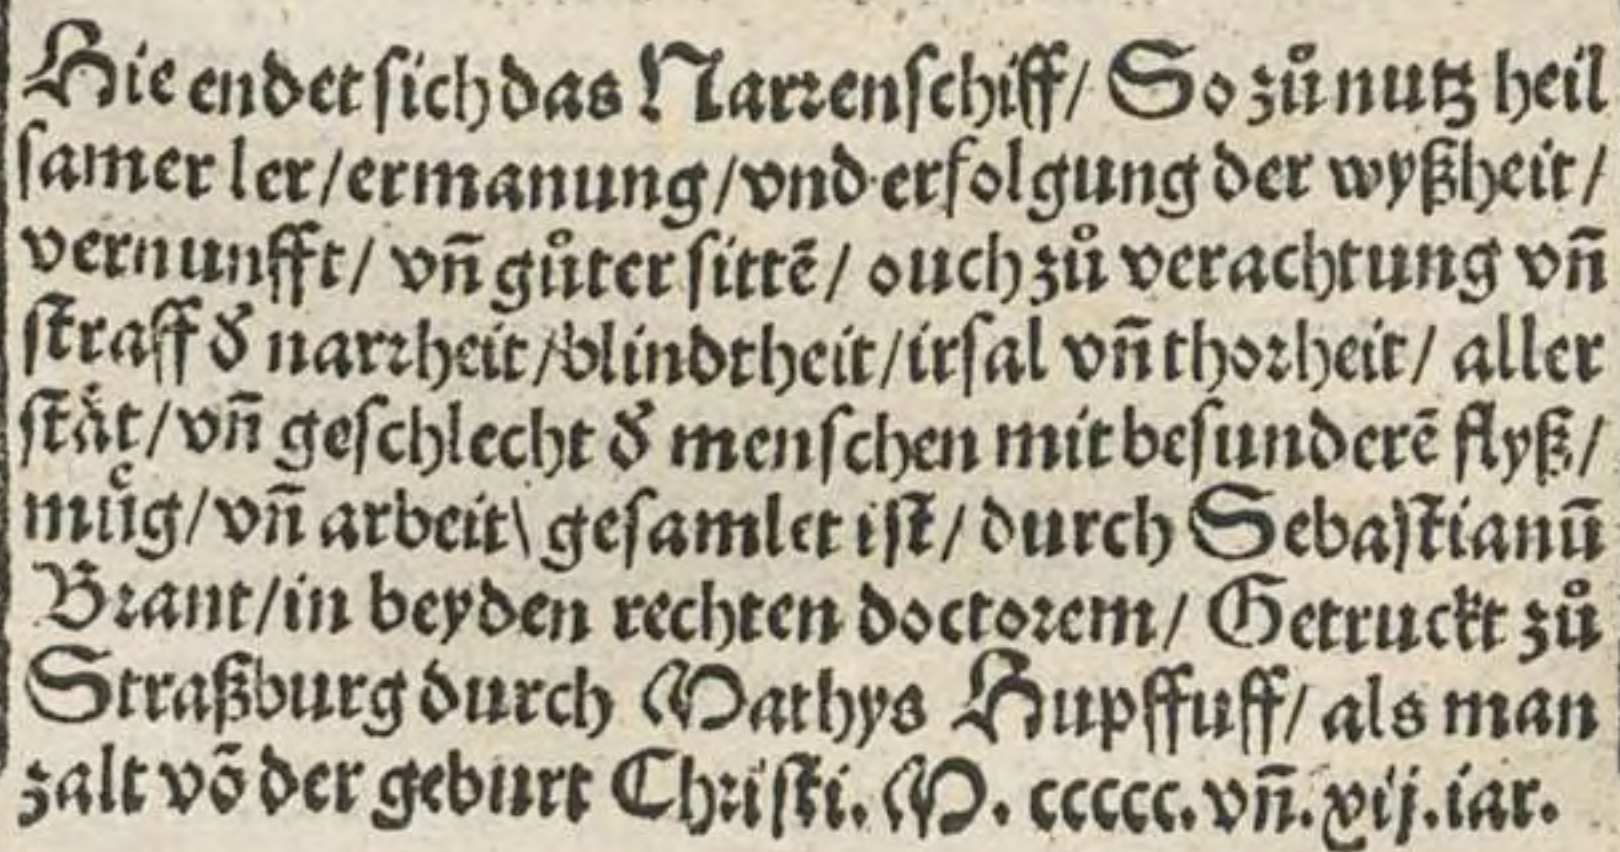 Hie endet ſich das Narꝛenſchiff/ So zuͦ nutz heil
ſamer ler/ermanung/vnd erfolgung der wyßheit/
vernunfft/ vn̄ guͦter ſittē/ ouch zuͦ verachtung vn̄
ſtraff d̕ narꝛheit/blindtheit/irſal vn̄ thoꝛheit/ aller
ſtaͤt/vn̄ geſchlecht d̕ menſchen mit beſunderē flyß/
muͤg/vn̄ arbeit\ geſamlet iſt/ durch Sebaſtianū
Bꝛant/in beyden rechten doctoꝛem/ Getruckt zuͦ
Straßburg durch Mathys Hupffuff/ als man
zalt vō der geburt Chꝛiſti. M. ccccc. vn̄. xij. iar.